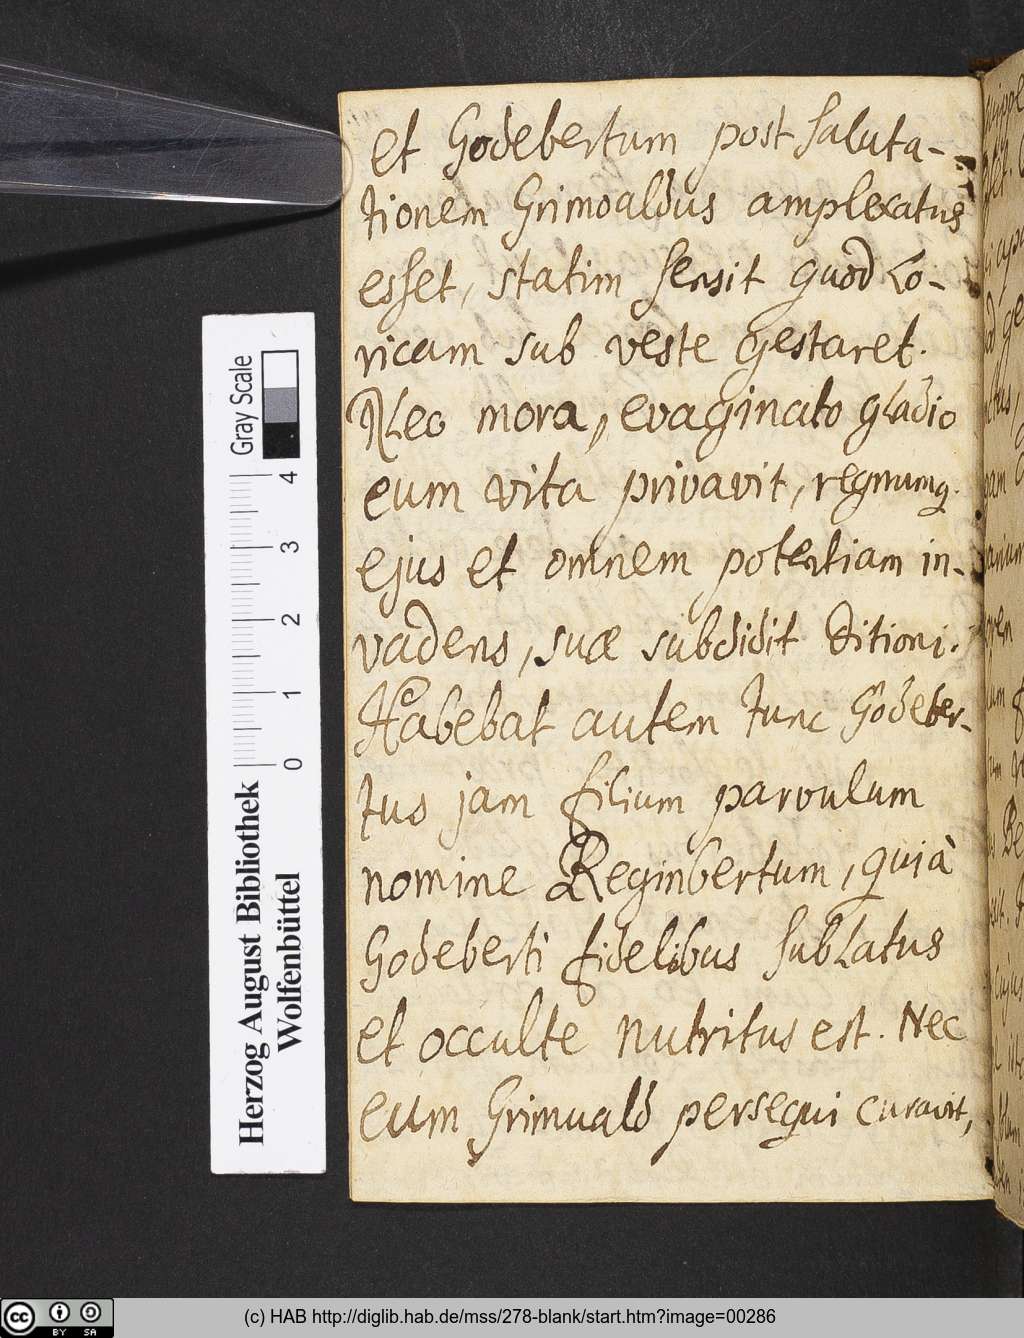 et Godebertum post saluta-
tionem Grimoaldus amplexatus
esset, statim sensit quod Lo-
ricam sub veste gestaret.
Nec mora, evaginato gladio
eum vita privavit, regnumq.
ejus et omnem potentiam in-
vadens, suæ subdidit ditioni.
Habebat autem tunc Godeber-
tus jam filium parvulum
nomine Reginbertum, quià
Godeberti fidelibus subLatus
et occulte nutritus est. Nec
eum Grimuald persequi curavit,
Gray Scale
4
3
2
1
0
Herzog August Bibliothek
Wolfenbüttel
cc BY SA
(c) HAB http://diglib.hab.de/mss/278-blank/start.htm?image=00286